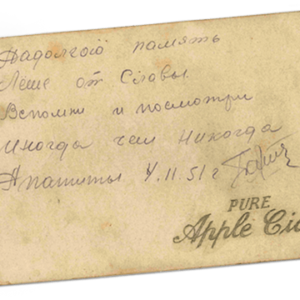 Надолгою память
Леше от Славы
Вспомни и посмотри
Иногда чем никогда
Апатиты 4.11.51г
PURE
Apple Ci